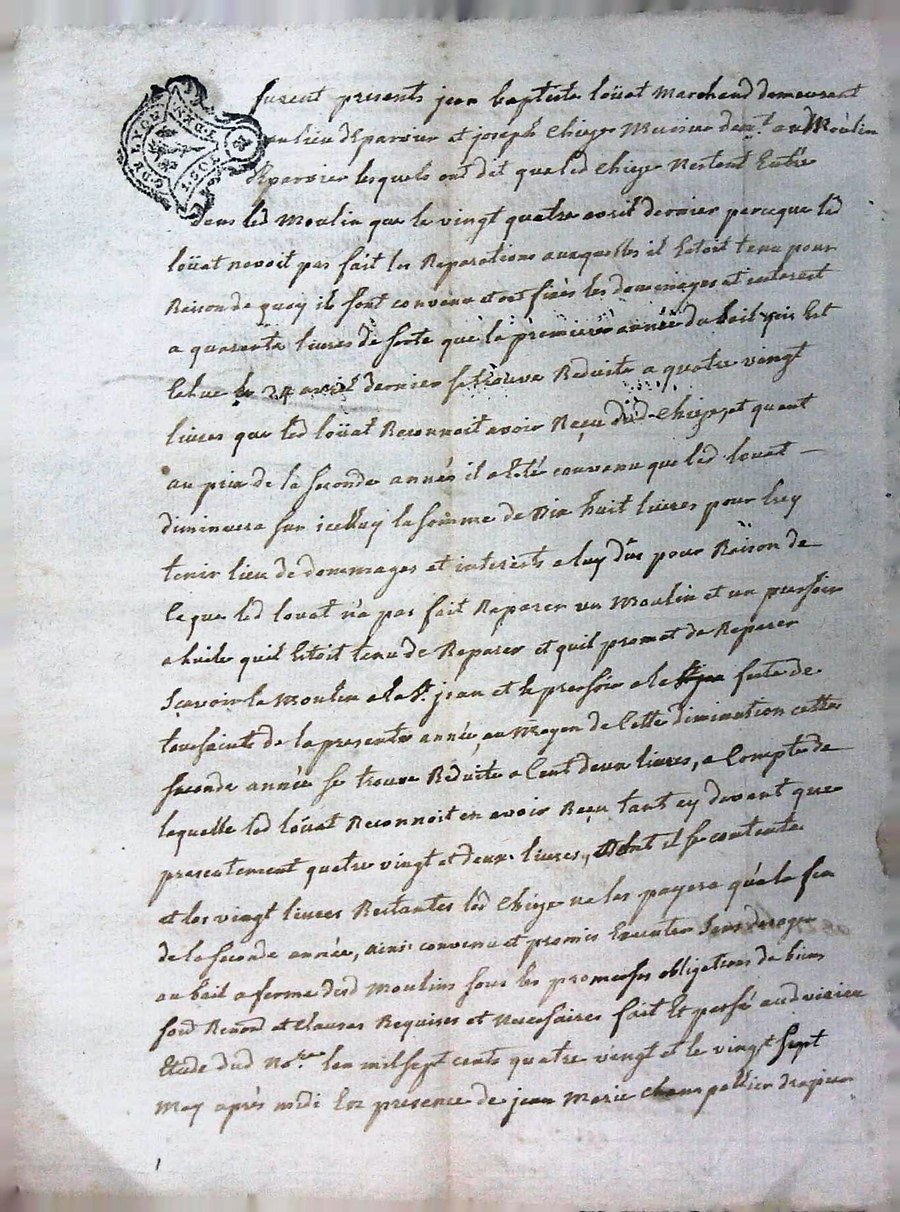 G. DE LYON
furent presents jean baptiste loüat Marchand demeurant
au lieu d'Eparcier et joseph Chieze Munier dem.t au Moulin
d'Eparcier lesquels ont dit que led Chieze n'estant Entré
dans led Moulin que le vingt quatre avril dernier parceque led
loüat navoit pas fait les Reparations auxquelles il Estoit tenu pour
Raison de quoy ils sont convenu et ont fixés les dommages et interest
a quarente livres de sorte que la premiere année du bail qui Est
Echue le 24 avril dernier se trouve Reduite a quatre vingt
livres que led loüat Reconnoit avoir Reçu dud Chieze, et quant
au prix de la seconde année il a été convenu que led loüat
diminuera sur icelluy la somme de Dix huit livres pour luy
tenir lieu de dommages et interests a luy dûs pour Raison de
ce que led loüat n'a pas fait Reparer un Moulin et un pressoir
a huile quil Estoit tenu de Reparer et quil promet de Reparer
Sçavoir le Moulin a la St. jean et le pressoir a la feste de
toussaints de la presente année, au Moyen de Cette diminution cette
seconde année se trouve Réduite a Cent deux livres, a Compte de
laquelle led loüat Reconnoit en avoir Reçu tant cy devant que
presentement quatre vingt et deux livres, dont il se contente
et les vingt livres Restantes led Chieze ne les payera qu'a la fin
de la seconde année, ainsi convenu et promis Executer Sans deroger
au bail a ferme desd Moulins sous les promesses obligations de biens
soud Renond et Clauses Requises et Necessaires fait Et passé aud
Etude dud No.re lan mil sept cents quatre vingt et le vingt sept
May après midi En presence de jean Marie